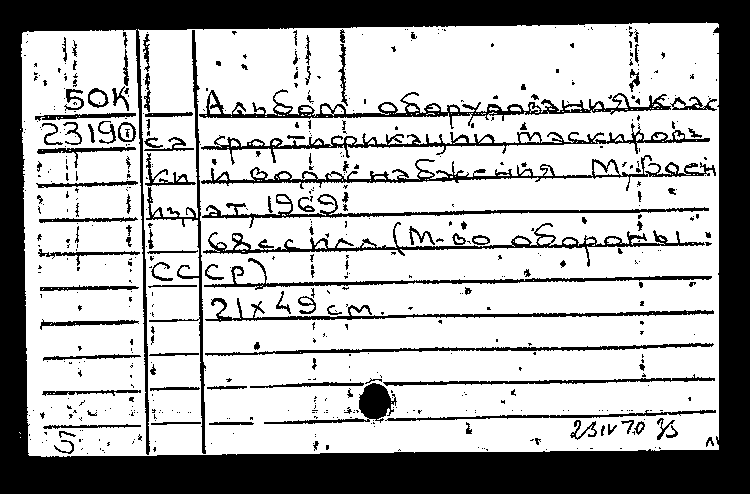 50К Альбом оборудования клас
23190 са фортификации, маскиров
ки и водоснабжения М; Воен
издат, 1969
68 с с илл. (М-во обороны
СССР)
21 х 49 cm.
23 IV 70
5